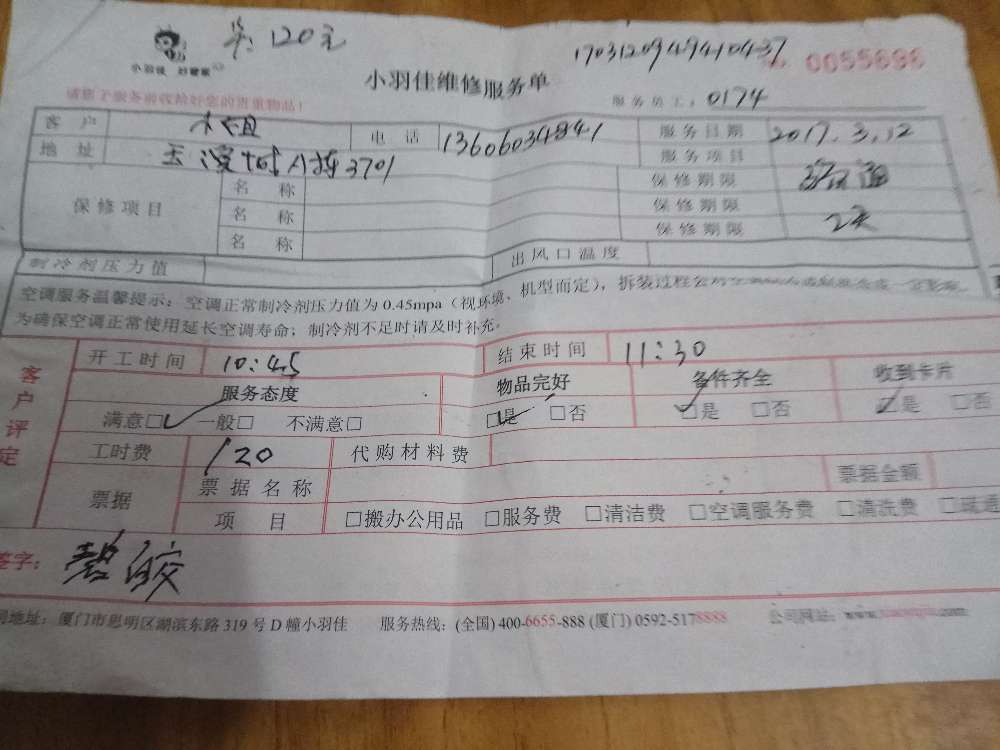 120元
1703120949410437
小羽佳 妙管家
0055898
小羽佳维修服务单
请您于服务前收给好您的贵重物品!
服务员工: 0174
客 户 电 话 13606034841 服务日期 2017.3.12
地 址 8栋3701 服务项目 疏通
保修项目 名 称 保修期限
名 称 保修期限 2天
名 称 保修期限
制冷剂压力值 出风口温度
空调服务温馨提示: 空调正常制冷剂压力值为0.45mpa(视环境、机型而定),拆装过程会对
为确保空调正常使用延长空调寿命;制冷剂不足时请及时补充。
客户评定
开工时间 10:45 结束时间 11:30
服务态度 物品完好 备件齐全 收到卡片
满意□✓ 一般□ 不满意□ □是 □否 □是 □否 □是 □否
工时费 120 代购材料费
票据 票据名称 票据金额
项 目 □搬办公用品 □服务费 □清洁费 □空调服务费 □清洗费 □疏通
签字: 碧皎
司地址: 厦门市思明区湖滨东路319号D幢小羽佳 服务热线: (全国) 400-6655-888 (厦门) 0592-5178888 公司网站: www. .com